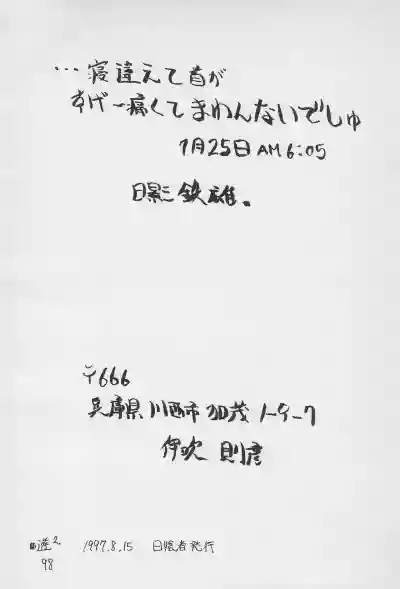 …寝違えて首が
すげー痛くてまわんないでしゅ
1月25日 AM6:05
日影 鉄雄。
〒666
兵庫県川西市加茂1-9-7
伊吹 則彦
1997.8.15 日陰者発行
98